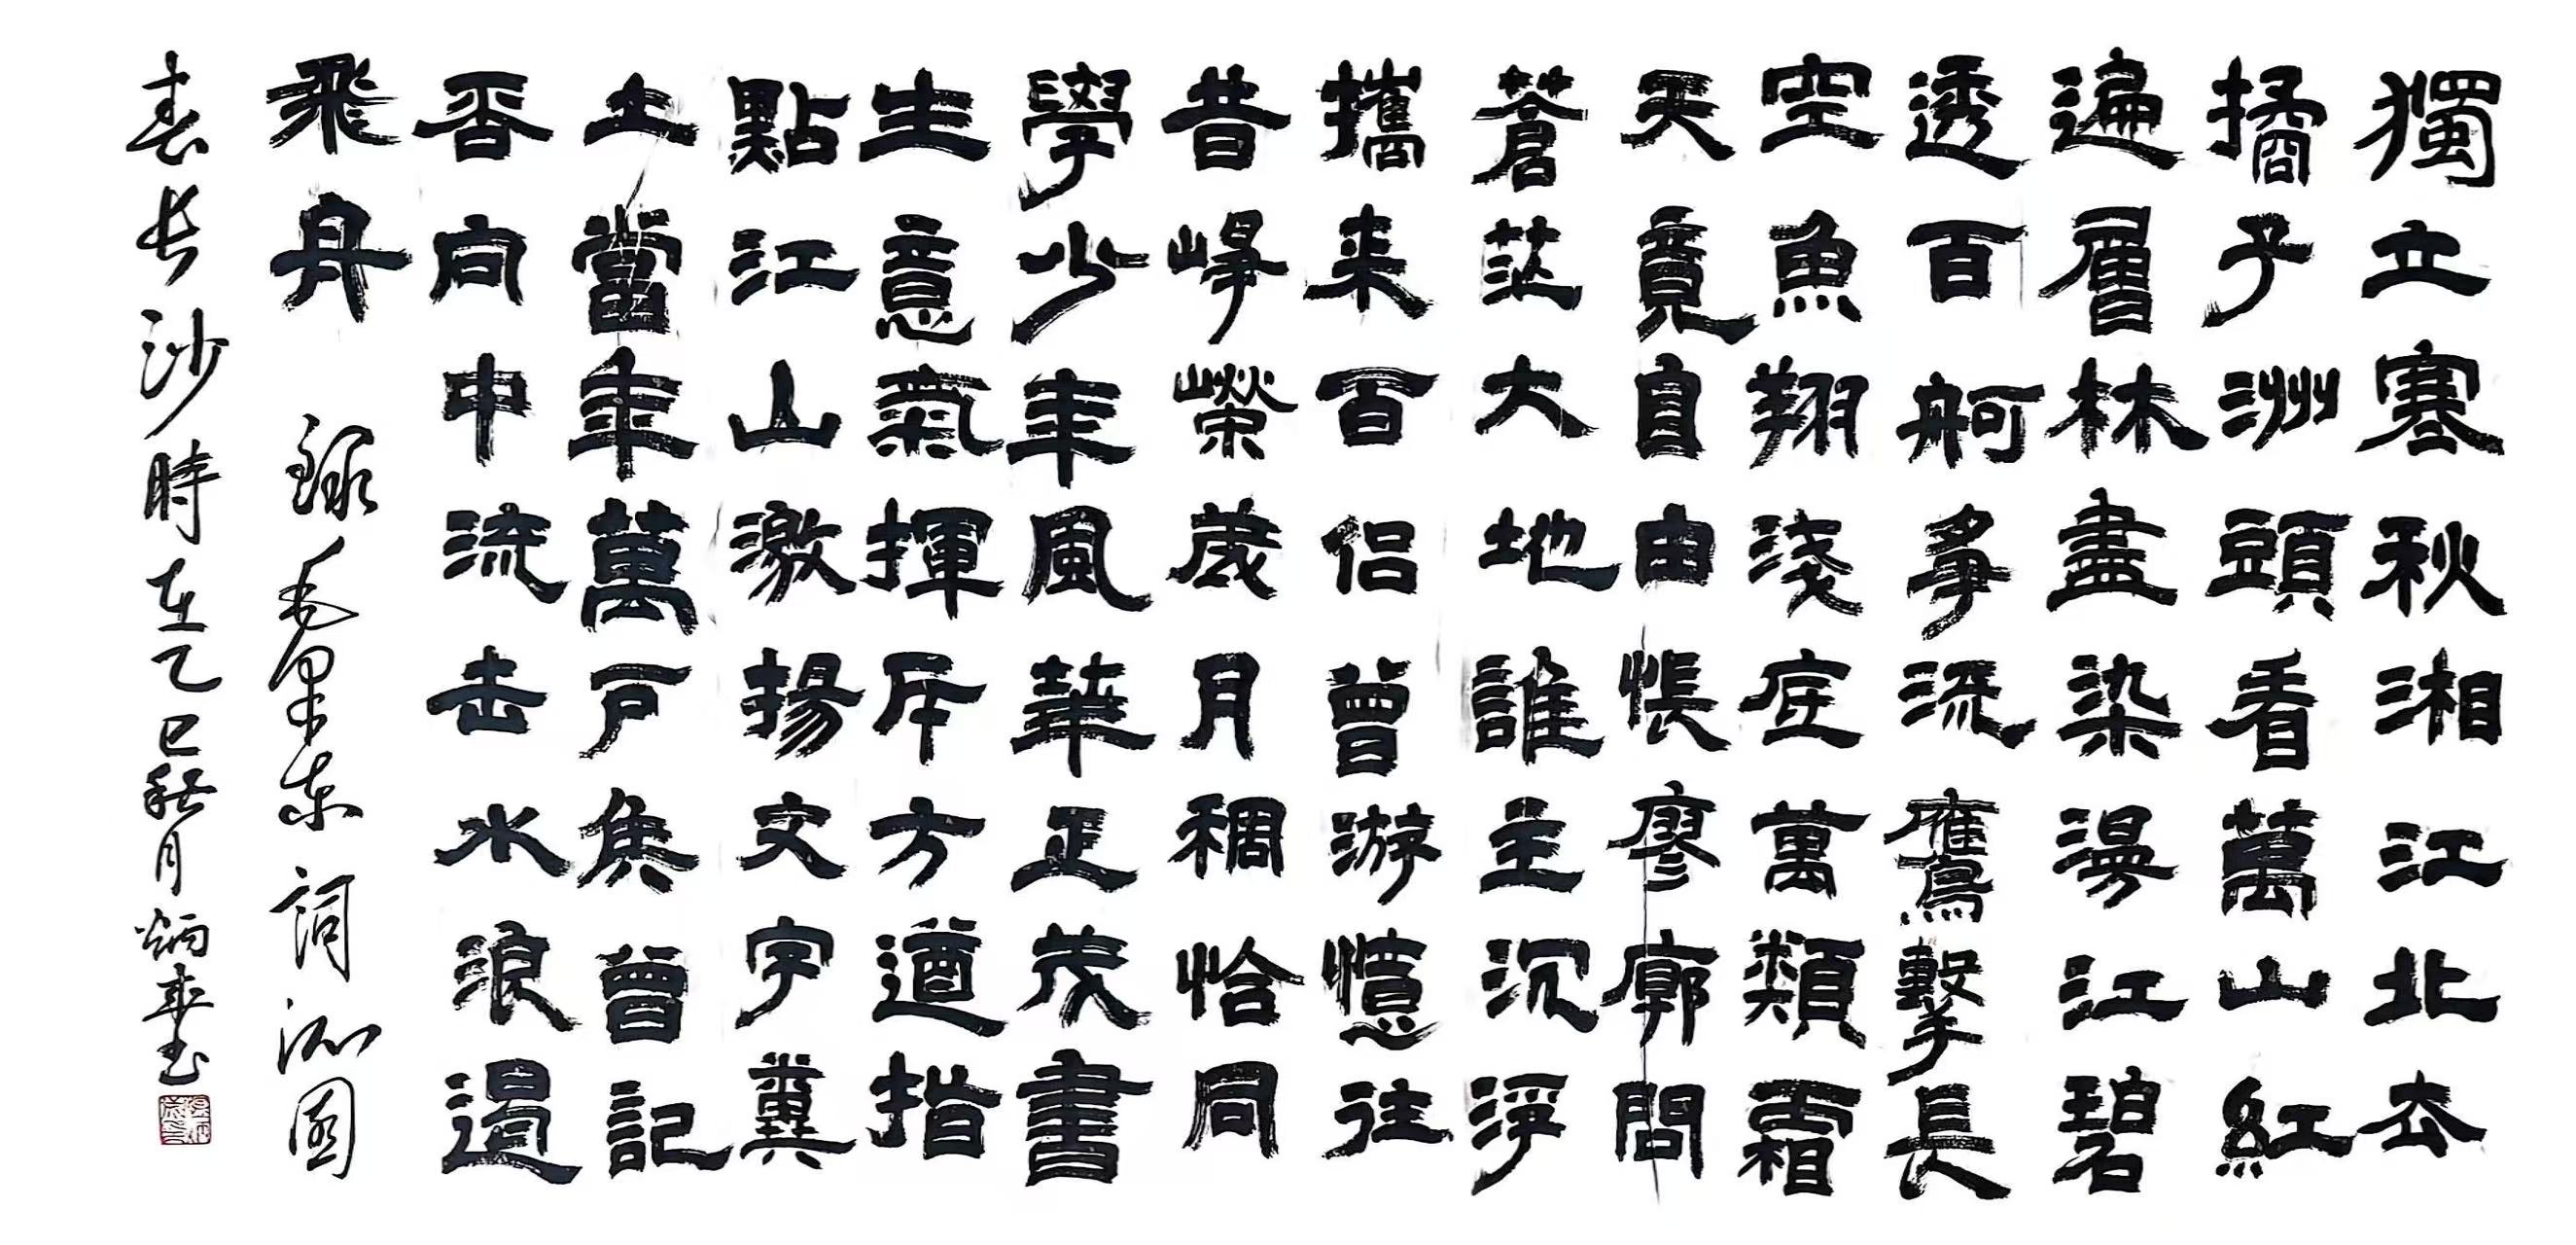 獨立寒秋湘江北去
橘子洲頭看萬山紅
遍層林盡染漫江碧
透百舸爭流鷹擊長
空魚翔淺底萬類霜
天竟自由悵廖廓問
蒼茫大地誰主沉浮
攜来百侶曾游憶往
昔崢嶸歲月稠恰同
學少年風華正茂書
生意氣揮斥方遒指
點江山激揚文字糞
土當年萬户侯曾記
否向中流击水浪遏
飛舟 録毛泽东詞沁園
春长沙時在乙巳秋月炳书